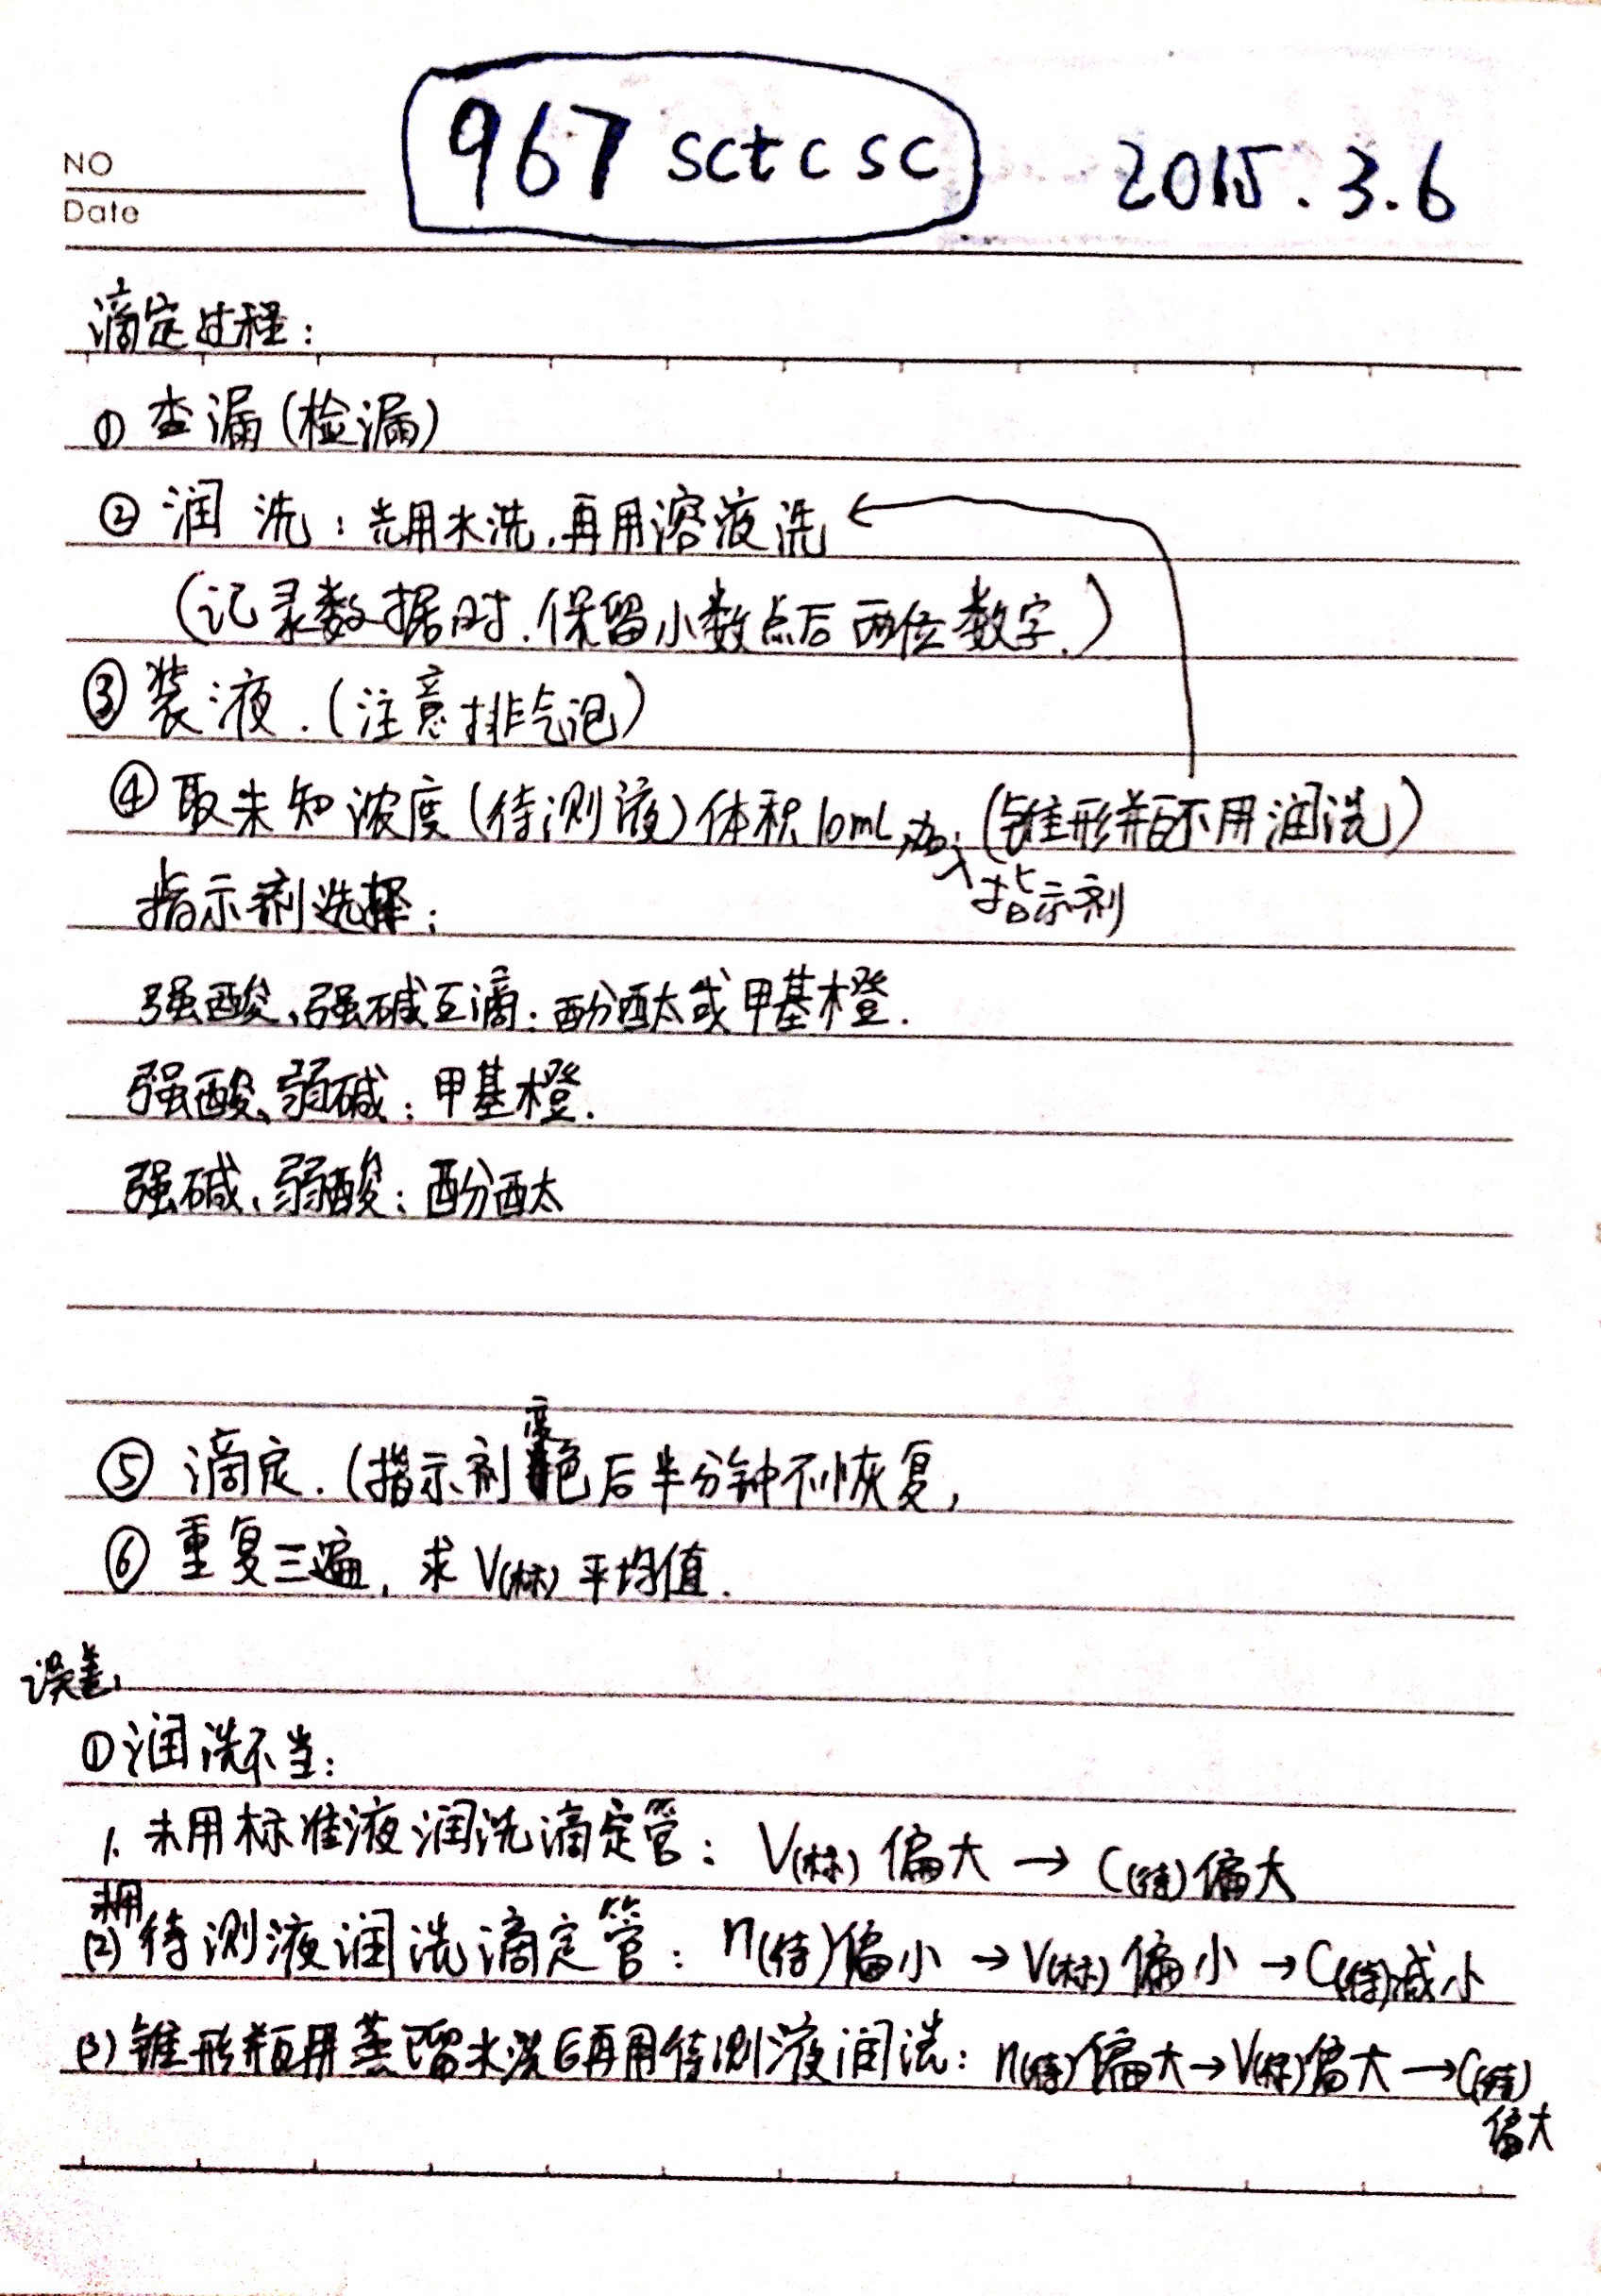 967 sctcsc
2015.3.6
NO
Date
滴定过程:
① 查漏(检漏)
② 润洗:先用水洗.再用溶液洗
(记录数据时.保留小数点后两位数字.)
③ 装液.(注意排气泡)
④ 取未知浓度(待测液)体积10mL,加入指示剂(锥形瓶不用润洗)
指示剂选择:
强酸、强碱互滴:酚酞或甲基橙.
强酸、弱碱:甲基橙.
强碱、弱酸:酚酞
⑤ 滴定.(指示剂变色后半分钟不恢复,
⑥ 重复三遍,求V(标)平均值.
误差:
①润洗不当:
1.未用标准液润洗滴定管:V(标)偏大→C(待)偏大
(2)未用待测液润洗滴定管:n(待)偏小→V(标)偏小→C(待)减小
(3)锥形瓶用蒸馏水洗后再用待测液润洗:n(待)偏大→V(标)偏大→C(待)
偏大